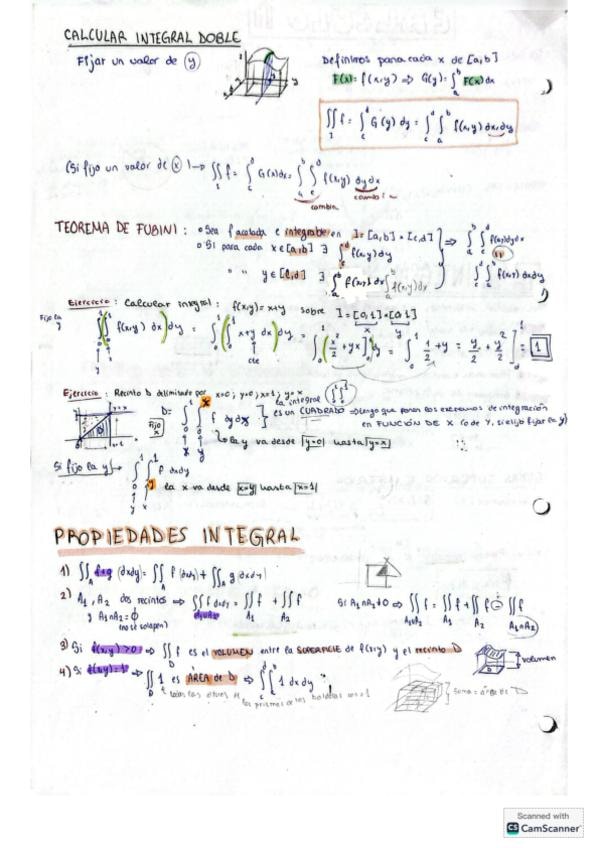 CALCULAR INTEGRAL DOBLE
Fijar un valor de y
Definimos para cada x de [a,b]
F(x) = f(x,y) ⇒ G(y) = ∫_a^b F(x)dx
∬_I f = ∫_c^d G(y) dy = ∫_c^d ∫_a^b f(x,y) dx dy
(Si fijo un valor de x) → ∬_I f = ∫_c^d G(x)dx = ∫_a^b ∫_c^d f(x,y) dy dx
cambia
TEOREMA DE FUBINI:
Sea f acotada e integrable en I = [a,b] × [c,d]
Si para cada x ∈ [a,b] ∃ ∫_c^d f(x,y) dy
" " y ∈ [c,d] ∃ ∫_a^b f(x,y) dx
⇒ ∫_a^b ∫_c^d f(x,y) dy dx
∫_c^d ∫_a^b f(x,y) dx dy
Ejercicio: Calcular integral: f(x,y) = x+y sobre I = [0,1] × [0,1]
x y
Fijo la y
∫_0^1 (∫_0^1 f(x,y) dx) dy = ∫_0^1 (∫_0^1 x+y dx) dy = ∫_0^1 (x²/2 + yx)_0^1 dy = ∫_0^1 1/2 + y = y/2 + y²/2 ]_0^1 = 1
cte
Ejercicio: Recinto D delimitado por x=0; y=0; x=1; y=x
D = ∫_0^1 ∫_0^x f dy dx
Fijo x
la integral
es un CUADRADO → tengo que poner los extremos de integración
en FUNCIÓN DE X (o de Y, si elijo fijar la y)
la y va desde y=0 hasta y=x
Si fijo la y → ∫_0^1 ∫_y^1 f dx dy
la x va desde x=y hasta x=1
PROPIEDADES INTEGRAL
1) ∬_A f+g (dxdy) = ∬_A f (dxdy) + ∬_A g (dxdy)
2) A₁, A₂ dos recintos ⇒ ∬_{A₁∪A₂} f dxdy = ∬_{A₁} f + ∬_{A₂} f
y A₁∩A₂ = ϕ
(no se solapen)
Si A₁∩A₂ ≠ 0 ⇒ ∬_{A₁∪A₂} f = ∬_{A₁} f + ∬_{A₂} f - ∬_{A₁∩A₂} f
3) Si f(x,y) > 0 ⇒ ∬_D f es el VOLUMEN entre la SUPERFICIE de f(x,y) y el recinto D
volumen
4) Si f(x,y) = 1 ⇒ ∬_D 1 es ÁREA de D ⇒ ∫_c^d ∫_a^b 1 dx dy
suma = área de D
Scanned with
CS CamScanner